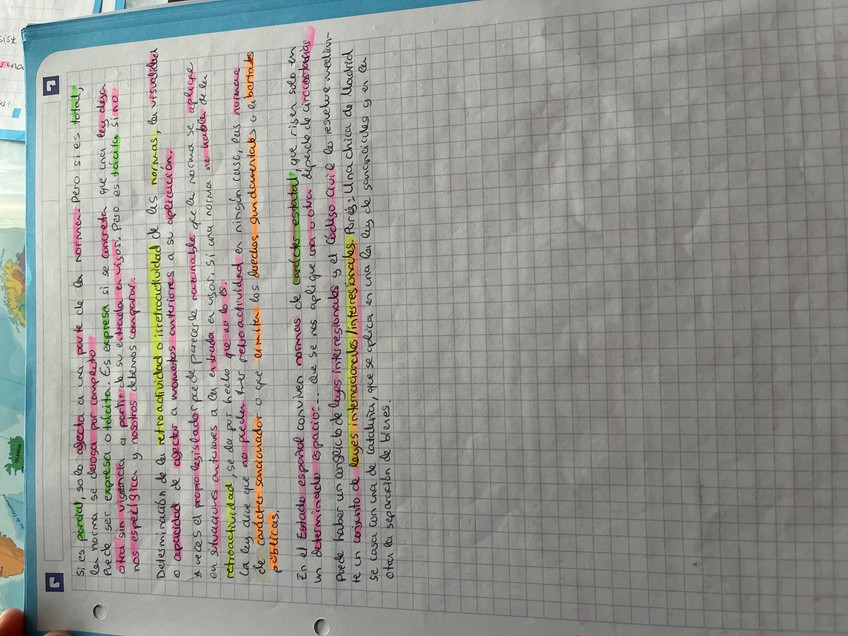 Si es parcial, solo afecta a una parte de la norma. Pero si es total,
la norma se deroga por completo.
Puede ser expresa o tácita. Es expresa si se concreta que una ley deja
otra sin vigencia a partir de su entrada en vigor. Pero es tácita si no
nos especifica y nosotros debemos comparar.
Determinación de la retroactividad o irretroactividad de las normas, la
o capacidad de afectar a momentos anteriores a su aplicación.
A veces el propio legislador puede parecerle razonable que la norma se aplique
en situaciones anteriores a la entrada en vigor. Si una norma no habla de la
retroactividad, se da por hecho que no lo es.
La ley dice que no pueden tener retroactividad en ningún caso, las normas
de carácter sancionador o que limiten los derechos fundamentales o libertades
públicas.
En el Estado español conviven normas de carácter estatal, que rigen solo en
un determinado espacio... que se nos aplique una u otra depende de circunstancias
Puede haber un conflicto de leyes interregionales y el Código Civil lo resuelve median-
te un conjunto de leyes internacionales/interregionales. Por ej: Una chica de Madrid
se casa con uno de Cataluña, que se aplica en una la ley de gananciales y en la
otra la separación de bienes.
sist